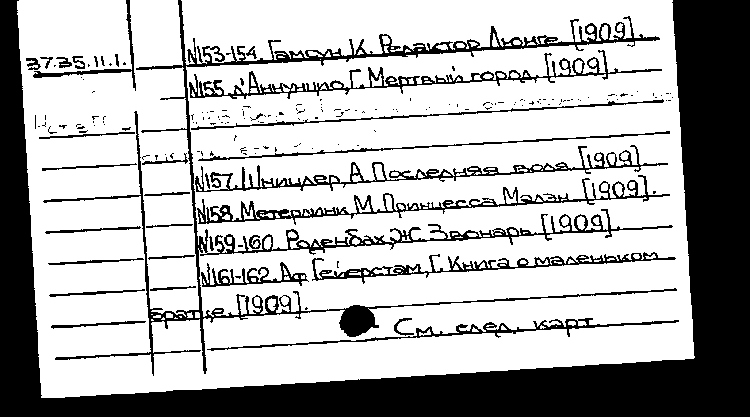 37.35.11.1. №153-154. Гамсун, К. Редактор Люнге. [1909].
№155. д'Аннунцио, Г. Мертвый город. [1909].
№156.
№157. Шницлер, А. Последняя воля. [1909].
№158. Метерлинк, М. Принцесса Мален. [1909].
№159-160. Роденбах, Ж. Звонарь. [1909].
№161-162. Аф Гейерстам, Г. Книга о маленьком
братце. [1909].
См. след. карт.